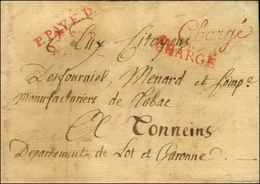 P.PAYÉ.D. Chargé
Aux Citoyens CHARGÉ
Desfourniel, Menard et Comp.e
Manufacturiers de Tabac
A Tonneins
Departement de Lot et Garonne